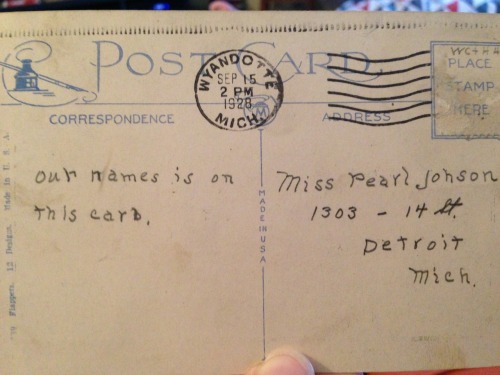 POST CARD
WYANDOTTE
SEP 15
2 PM
1928
MICH.
PLACE
STAMP
HERE
CORRESPONDENCE
ADDRESS
our names is on
this card.
Miss Pearl Johson
1303 - 14 St.
Detroit
Mich.
MADE IN USA
Flappers. 12 Designs. Made in U. S. A.